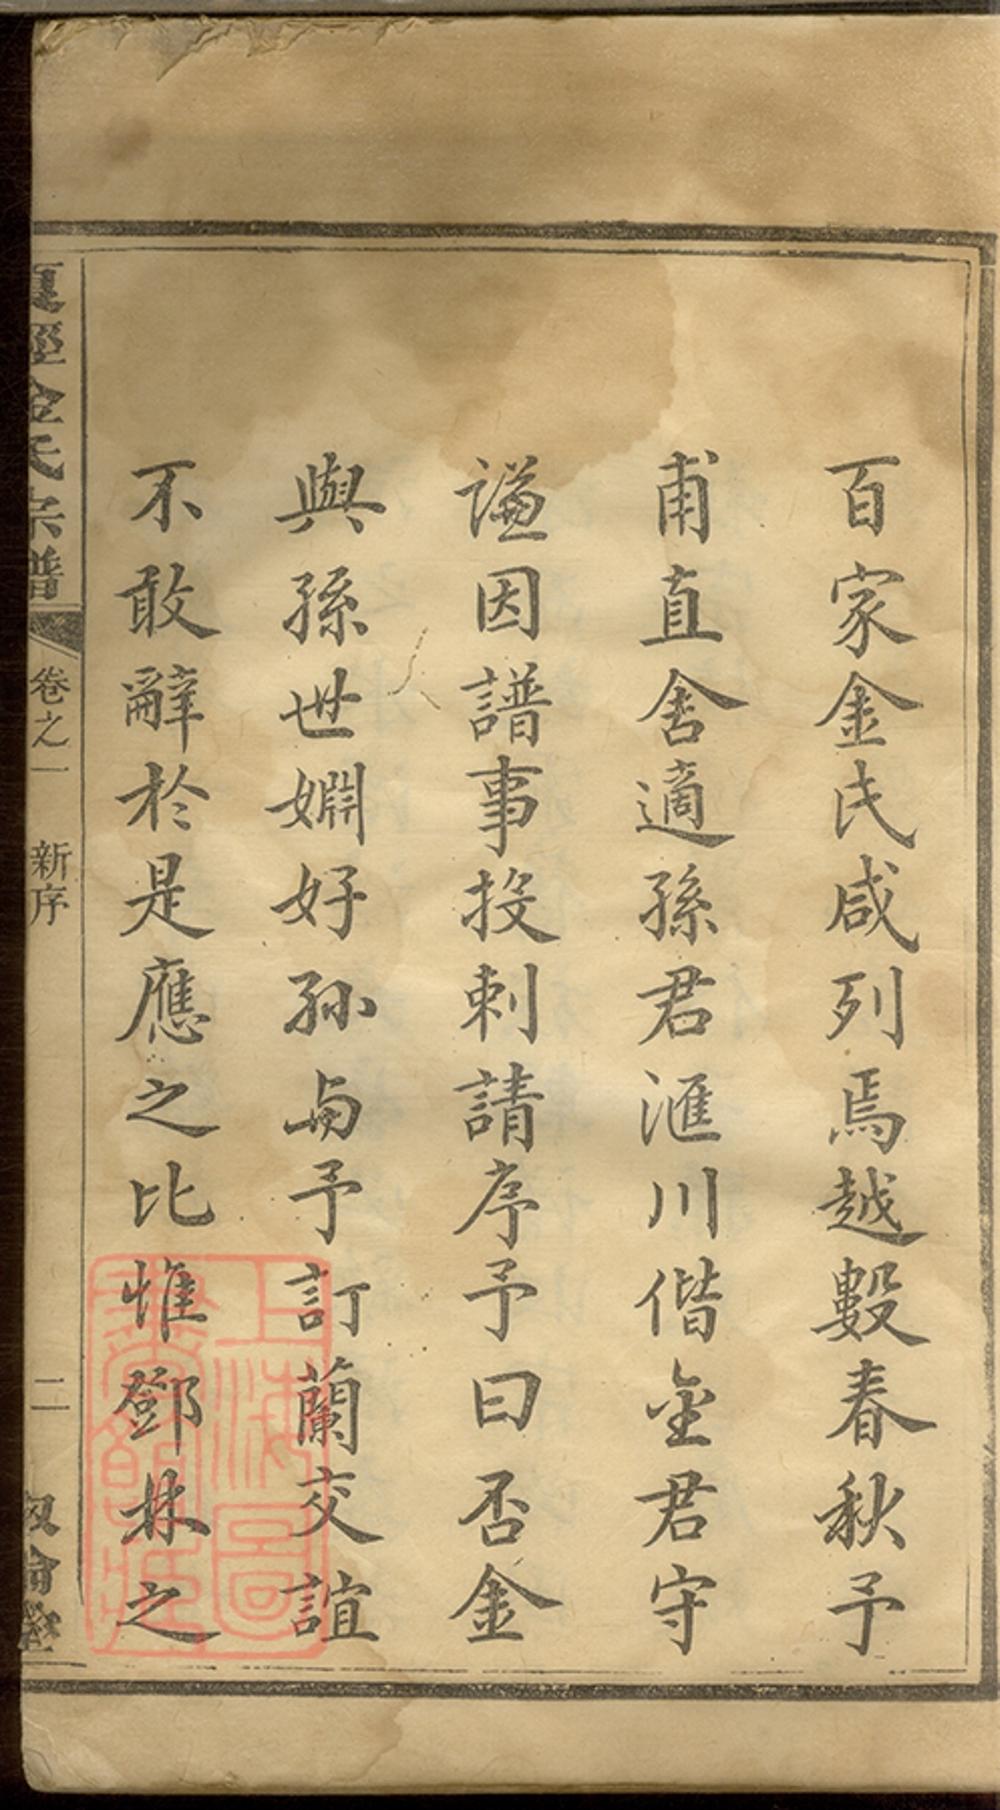 百家金氏咸列焉越數春秋予
甫直舍適孫君滙川偕金君守
谦因譜事投刺請序予曰否金
與孫世婣好孙与予訂蘭交誼
不敢辭於是應之比惟鄧林之
金氏宗譜
卷之一
新序
二
上海圖書館藏